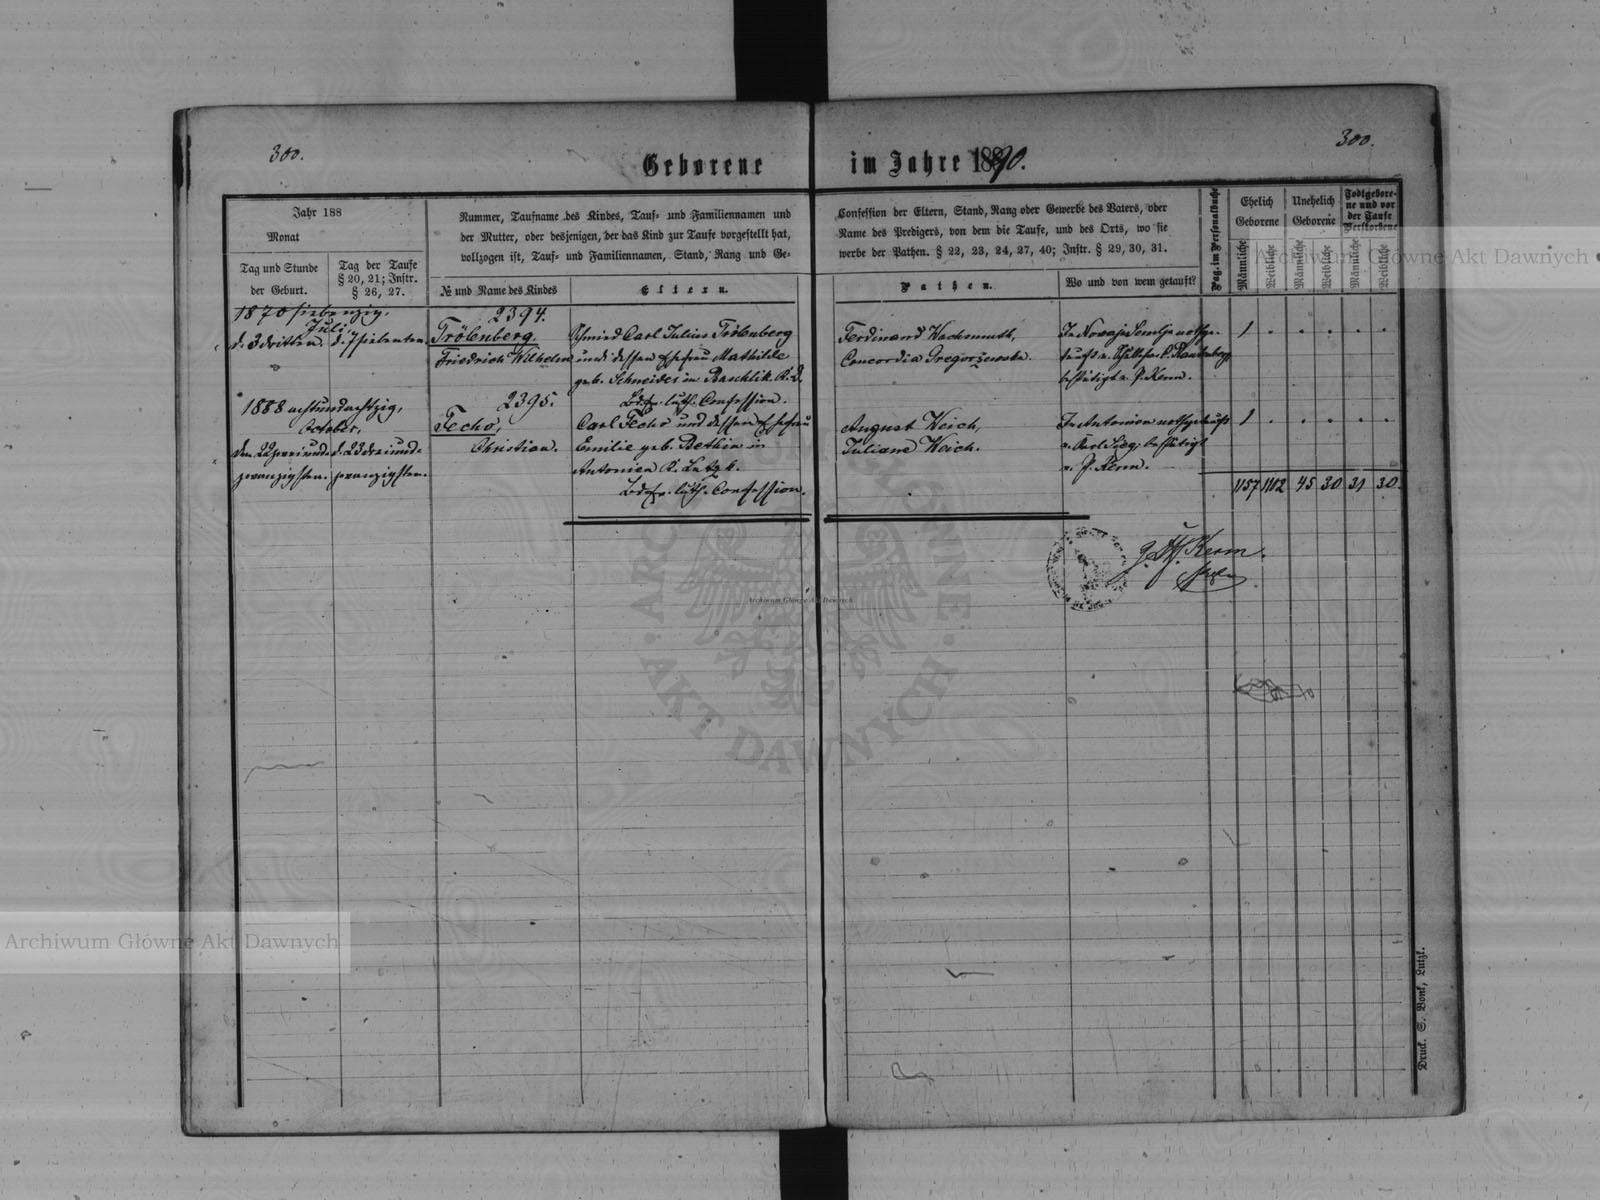 300.
300.
Geborene im Jahre 1890.
Jahr 188
Monat
Tag und Stunde
der Geburt.
Tag der Taufe
§ 20, 21; Instr.
§ 26, 27.
Nummer, Taufname des Kindes, Tauf- und Familiennamen und
der Mutter, oder desjenigen, der das Kind zur Taufe vorgestellt hat,
vollzogen ist, Tauf- und Familiennamen, Stand, Rang und Ge-
№ und Name des Kindes
Eltern.
Confession der Eltern, Stand, Rang oder Gewerbe des Vaters, oder
Name des Predigers, von dem die Taufe, und des Orts, wo sie
werbe der Pathen. § 22, 23, 24, 27, 40; Instr. § 29, 30, 31.
Pathen.
Wo und von wem getauft?
Pag. im Personalbuche
Ehelich
Geborene
Unehelich
Geborene
Todtgebore-
ne und vor
der Taufe
Verstorbene
Männliche
Weibliche
Männliche
Weibliche
Männliche
Weibliche
1870 siebenzig,
Juli,
d. 3 dritten. d. 7 siebenten.
2394.
Tröbenberg,
Friedrich Wilhelm
Schmied Carl Julius Tröbenberg
und dessen Ehefrau Mathilde
geb. Schneider in Baschlik. K. D.
Bdr. luth. Confession.
Ferdinand Wachsmuth,
Concordia Gregorzewska.
In Nowaja Semlja nothge-
tauft v.
bestätigt v. P. Kerm.
1 . . . . .
1888 achtundachtzig,
October,
den 22 zwei und d. 23 drei und-
zwanzigsten. zwanzigsten.
2395.
Fecho,
Christian.
Carl Fecho und dessen Ehefrau
Emilie geb. Betkin in
Antonien K. Lutzk.
Bdr. luth. Confession.
August Weich,
Juliane Weich.
In Antonien nothgetauft
v. bestätigt
v. P. Kerm.
1 . . . . .
1157 1102 45 30 31 30.
Kerm.
Druck. S. Bonk, Lutzk.
Archiwum Główne Akt Dawnych
Archiwum Główne Akt Dawnych
Archiwum Główne Akt Dawnych
ARCHIWUM GŁÓWNE · AKT DAWNYCH ·